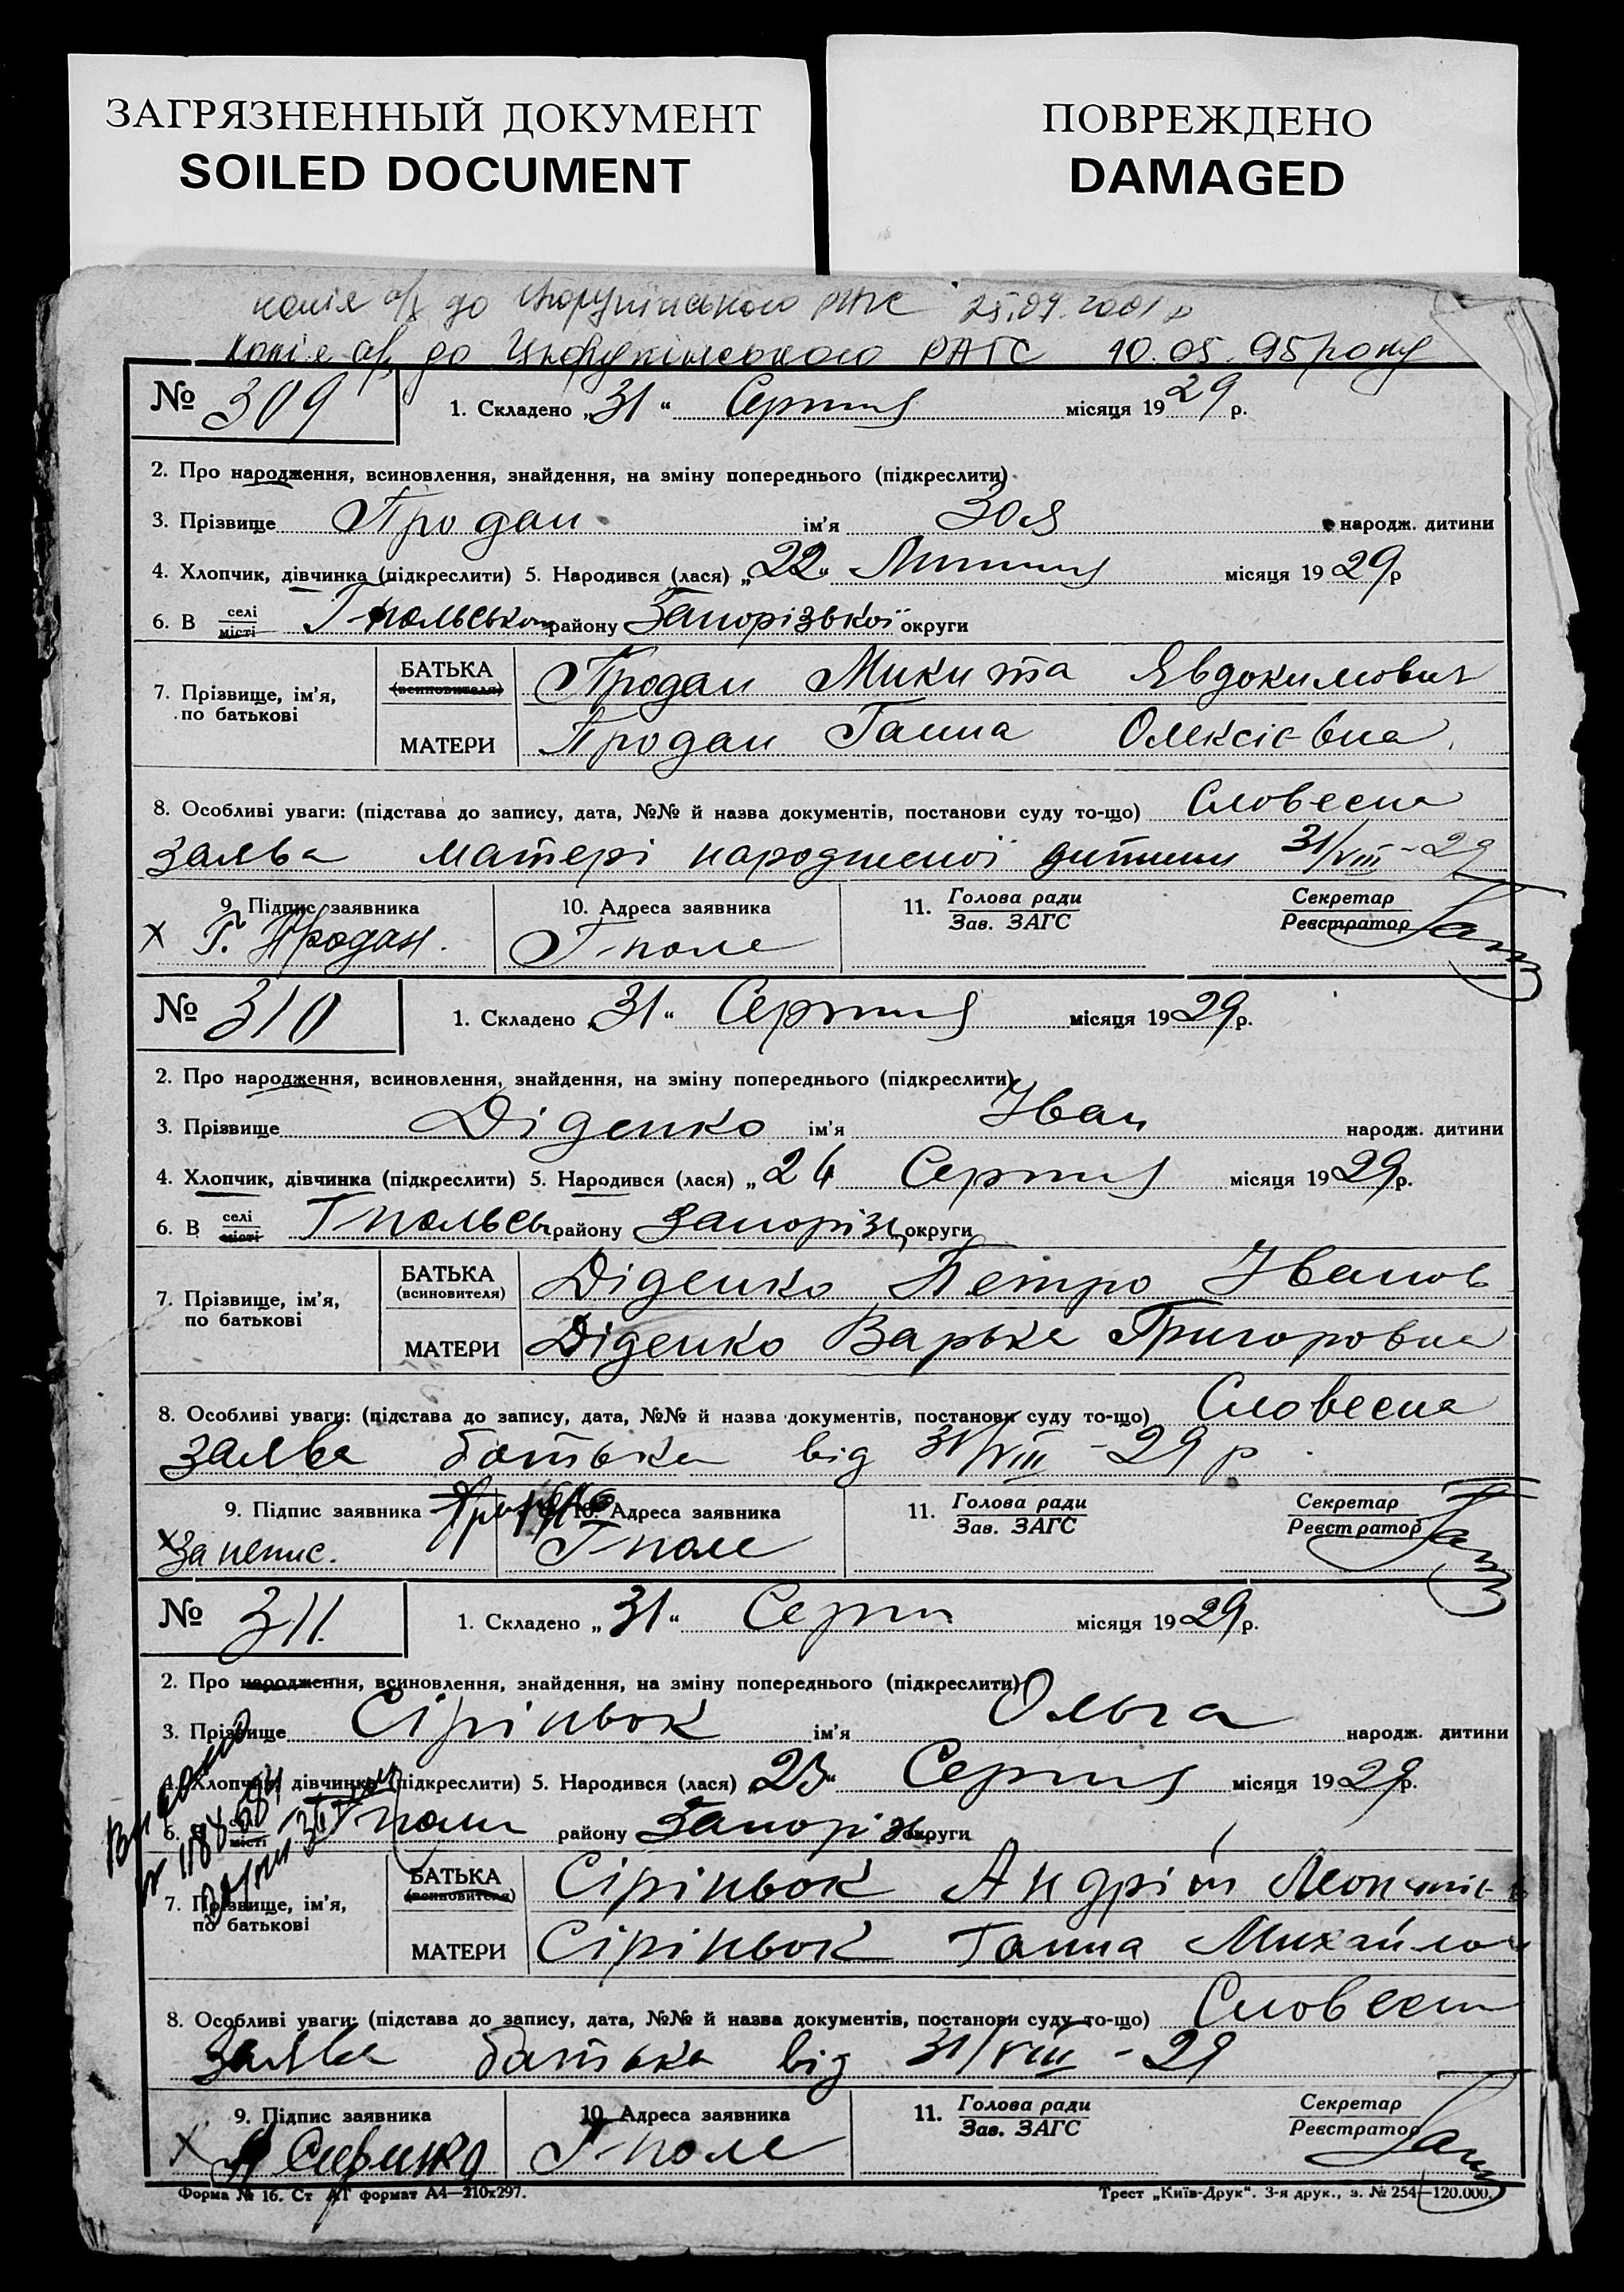 ЗАГРЯЗНЕННЫЙ ДОКУМЕНТ
SOILED DOCUMENT
ПОВРЕЖДЕНО
DAMAGED
копія а/з до Цюрупінського РАГС 25.09.2001 р
Копія а/з до Цюрупінського РАГС 10.05.95 року
№ 309
1. Складено „31“ Серпня місяця 1929 р.
2. Про народження, всиновлення, знайдення, на зміну попереднього (підкреслити)
3. Прізвище Продан ім’я Зоя народж. дитини
4. Хлопчик, дівчинка (підкреслити) 5. Народився (лася) „22“ Липня місяця 1929 р
6. В селі місті Г-польськом району Запорізької округи
7. Прізвище, ім’я, по батькові
БАТЬКА (всиновителя) Продан Микита Явдокимович
МАТЕРИ Продан Ганна Олексієвна
8. Особливі уваги: (підстава до запису, дата, №№ й назва документів, постанови суду то-що) Словесна
заява матері народженої дитини 31/VIII-29
9. Підпис заявника 10. Адреса заявника 11. Голова ради Зав. ЗАГС Секретар Реєстратор
х Г. Продан. Г-поле
№ 310
1. Складено „31“ Серпня місяця 1929 р.
2. Про народження, всиновлення, знайдення, на зміну попереднього (підкреслити)
3. Прізвище Діденко ім’я Іван народж. дитини
4. Хлопчик, дівчинка (підкреслити) 5. Народився (лася) „24 Серпня місяця 1929 р.
6. В селі місті Гпольсь району Запоріз округи
7. Прізвище, ім’я, по батькові
БАТЬКА (всиновителя) Діденко Петро Іванов
МАТЕРИ Діденко Варька Григоровна
8. Особливі уваги: (підстава до запису, дата, №№ й назва документів, постанови суду то-що) Словесна
заява батька від 31/VIII-29 р
9. Підпис заявника 10. Адреса заявника 11. Голова ради Зав. ЗАГС Секретар Реєстратор
х За непис. Г-поле
№ 311.
1. Складено „31“ Серпн місяця 1929 р.
2. Про народження, всиновлення, знайдення, на зміну попереднього (підкреслити)
3. Прізвище Сіріньок ім’я Ольга народж. дитини
4. Хлопчик, дівчинка (підкреслити) 5. Народився (лася) „23“ Серпня місяця 1929 р.
6. В селі місті Гполи району Запорізь округи
7. Прізвище, ім’я, по батькові
БАТЬКА (всиновителя) Сіріньок Андрій
МАТЕРИ Сіріньок Ганна Михайлов
8. Особливі уваги: (підстава до запису, дата, №№ й назва документів, постанови суду то-що) Словесн
заява батька від 31/VIII-29
9. Підпис заявника 10. Адреса заявника 11. Голова ради Зав. ЗАГС Секретар Реєстратор
х Г-поле
Форма № 16. Ст АГ формат А4—210х297.
Трест „Київ-Друк“. 3-я друк., з. № 254—120.000.